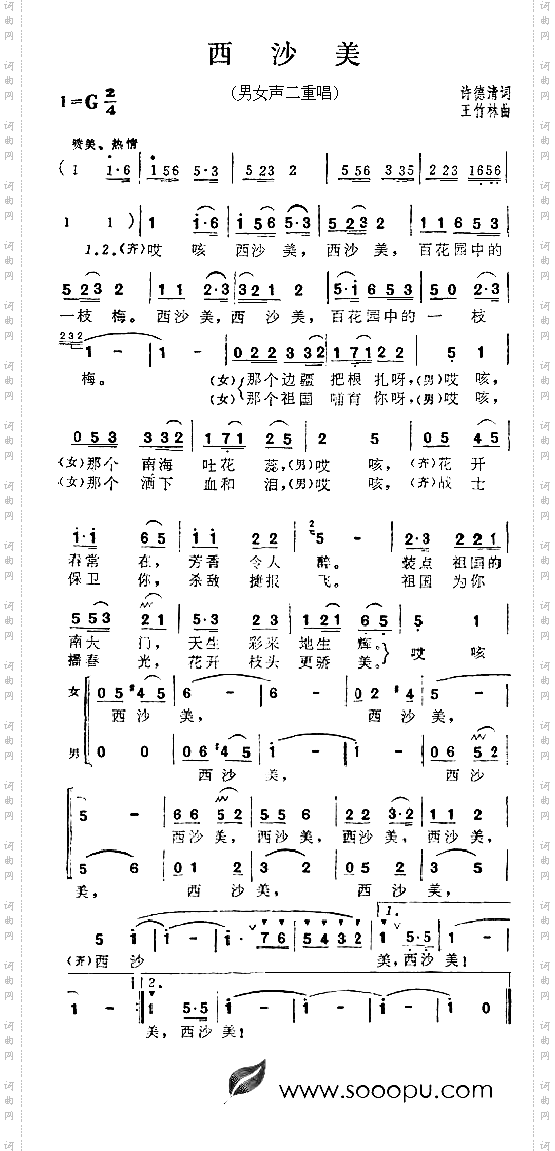 西沙美
(男女声二重唱)
1=G 2/4
许德清词
王竹林曲
赞美、热情
(1 1·6 | 1 56 5·3 | 5 23 2 | 556 335 | 223 1656 |
1 1) | 1 1·6 | 1 56 5·3 | 5 23 2 | 11 653 |
1.2.(齐)哎 咳 西沙 美, 西沙 美, 百花园中的
5 23 2 | 11 2·3 | 321 2 | 5·1 653 | 50 2·3 |
一枝 梅。 西沙 美, 西 沙 美, 百花园中的 一 枝
232
1 - | 1 - | 022 332 | 171 22 | 5 1 |
梅。 (女)那个边疆 把根 扎呀,(男)哎 咳,
(女)那个祖国 哺育 你呀,(男)哎 咳,
053 332 | 171 25 | 2 5 | 05 45 |
(女)那个 南海 吐花 蕊,(男)哎 咳, (齐)花 开
(女)那个 洒下 血和 泪,(男)哎 咳, (齐)战 士
1·1 65 | 11 22 | 5 - | 2·3 221 |
春常 在, 芳香 令人 醉。 装点 祖国的
保卫 你, 杀敌 捷报 飞。 祖国 为你
553 21 | 5·3 23 | 121 65 | 5 1 |
南大 门, 天生 彩来 地生 辉。 哎 咳
播春 光, 花开 枝头 更骄 美。
女 05 #45 | 6 - | 6 - | 02 #45 |
西沙 美, 西沙 美,
男 0 0 | 06 #45 | 1 - | 1 - | 06 52 |
西沙 美, 西沙
5 - | 66 52 | 55 6 | 22 3·2 | 11 2 |
西沙 美, 西沙 美, 西沙 美, 西沙 美,
5 6 | 01 2 | 3 2 | 05 2 | 3 5 |
美, 西沙 美, 西沙 美,
1.
5 1 | 1 - | 1·76 | 5432 | 1 5·5 |
(齐)西 沙 美,西沙 美!
2.
1 - :| 1 5·5 | 1 - | 1 - | 1 0 ‖
美,西沙 美!
www.sooopu.com
词曲网